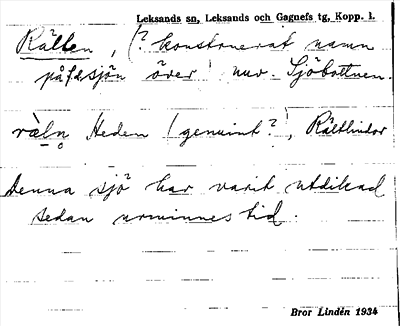 Leksands sn, Leksands och Gagnefs tg, Kopp. l.
Rälten, (? konstruerat namn
på f.d. sjön över nuv. Sjöbottnen.
räln Heden (genuint?),
Denna sjö har varit utdikad
sedan urminnes tid.
Bror Lindén 1934